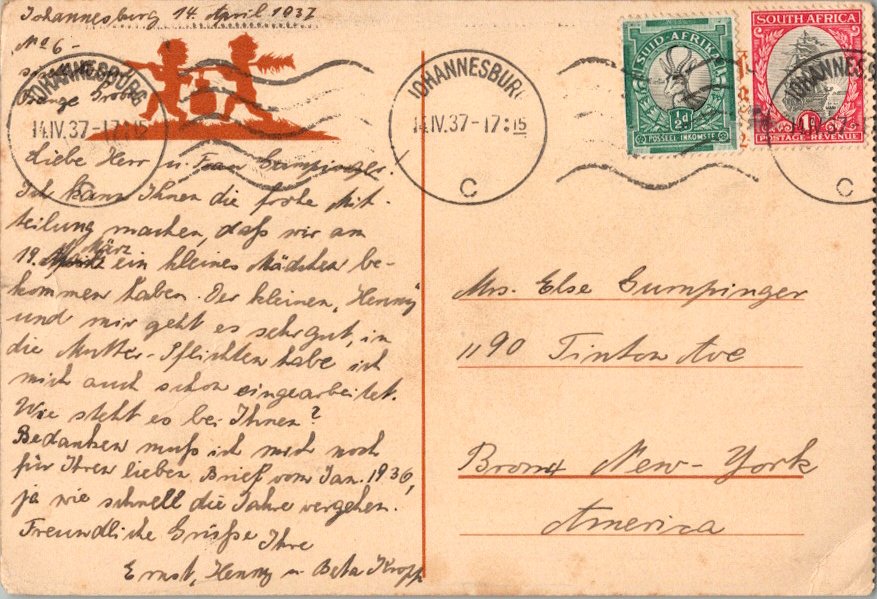 Johannesburg 14. April 1937
No 6 -
Orange Grove
Liebe Herr u. Frau Gumpinger.
Ich kann Ihnen die frohe Mit-
teilung machen, daß wir am
19. März ein kleines Mädchen be-
kommen haben. Der kleinen „Henny“
und mir geht es sehr gut, in
die Mutter-Pflichten habe ich
mich auch schon eingearbeitet.
Wie steht es bei Ihnen?
Bedanken muß ich mich noch
für Ihren lieben Brief vom Jan. 1936,
ja wie schnell die Jahre vergehen.
Freundliche Grüße Ihre
Ernst, Henny u Beta Kropp
JOHANNESBURG
14.IV.37-17:15
C
JOHANNESBURG
14.IV.37-17:15
C
SUID-AFRIKA
½d
POSSEEL-INKOMSTE
SOUTH AFRICA
1d
POSTAGE-REVENUE
JOHANNESBURG
C
Mrs. Else Gumpinger
1190 Tinton Ave
Bronx New-York
America